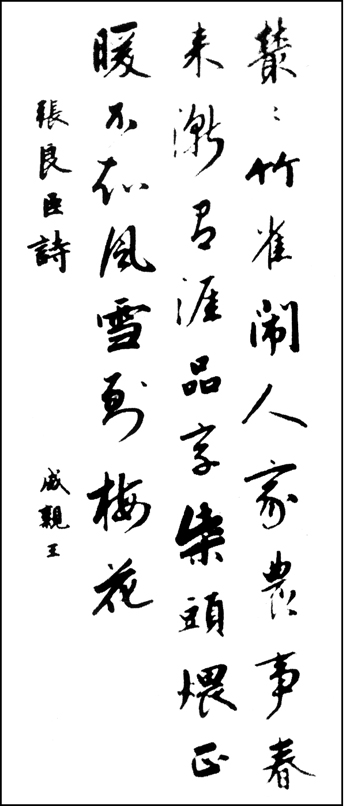 叢〻竹雀闹人家農事春
来漸有涯品字柴頭煨正
暖不知風雪到梅花
張良臣詩
成親王